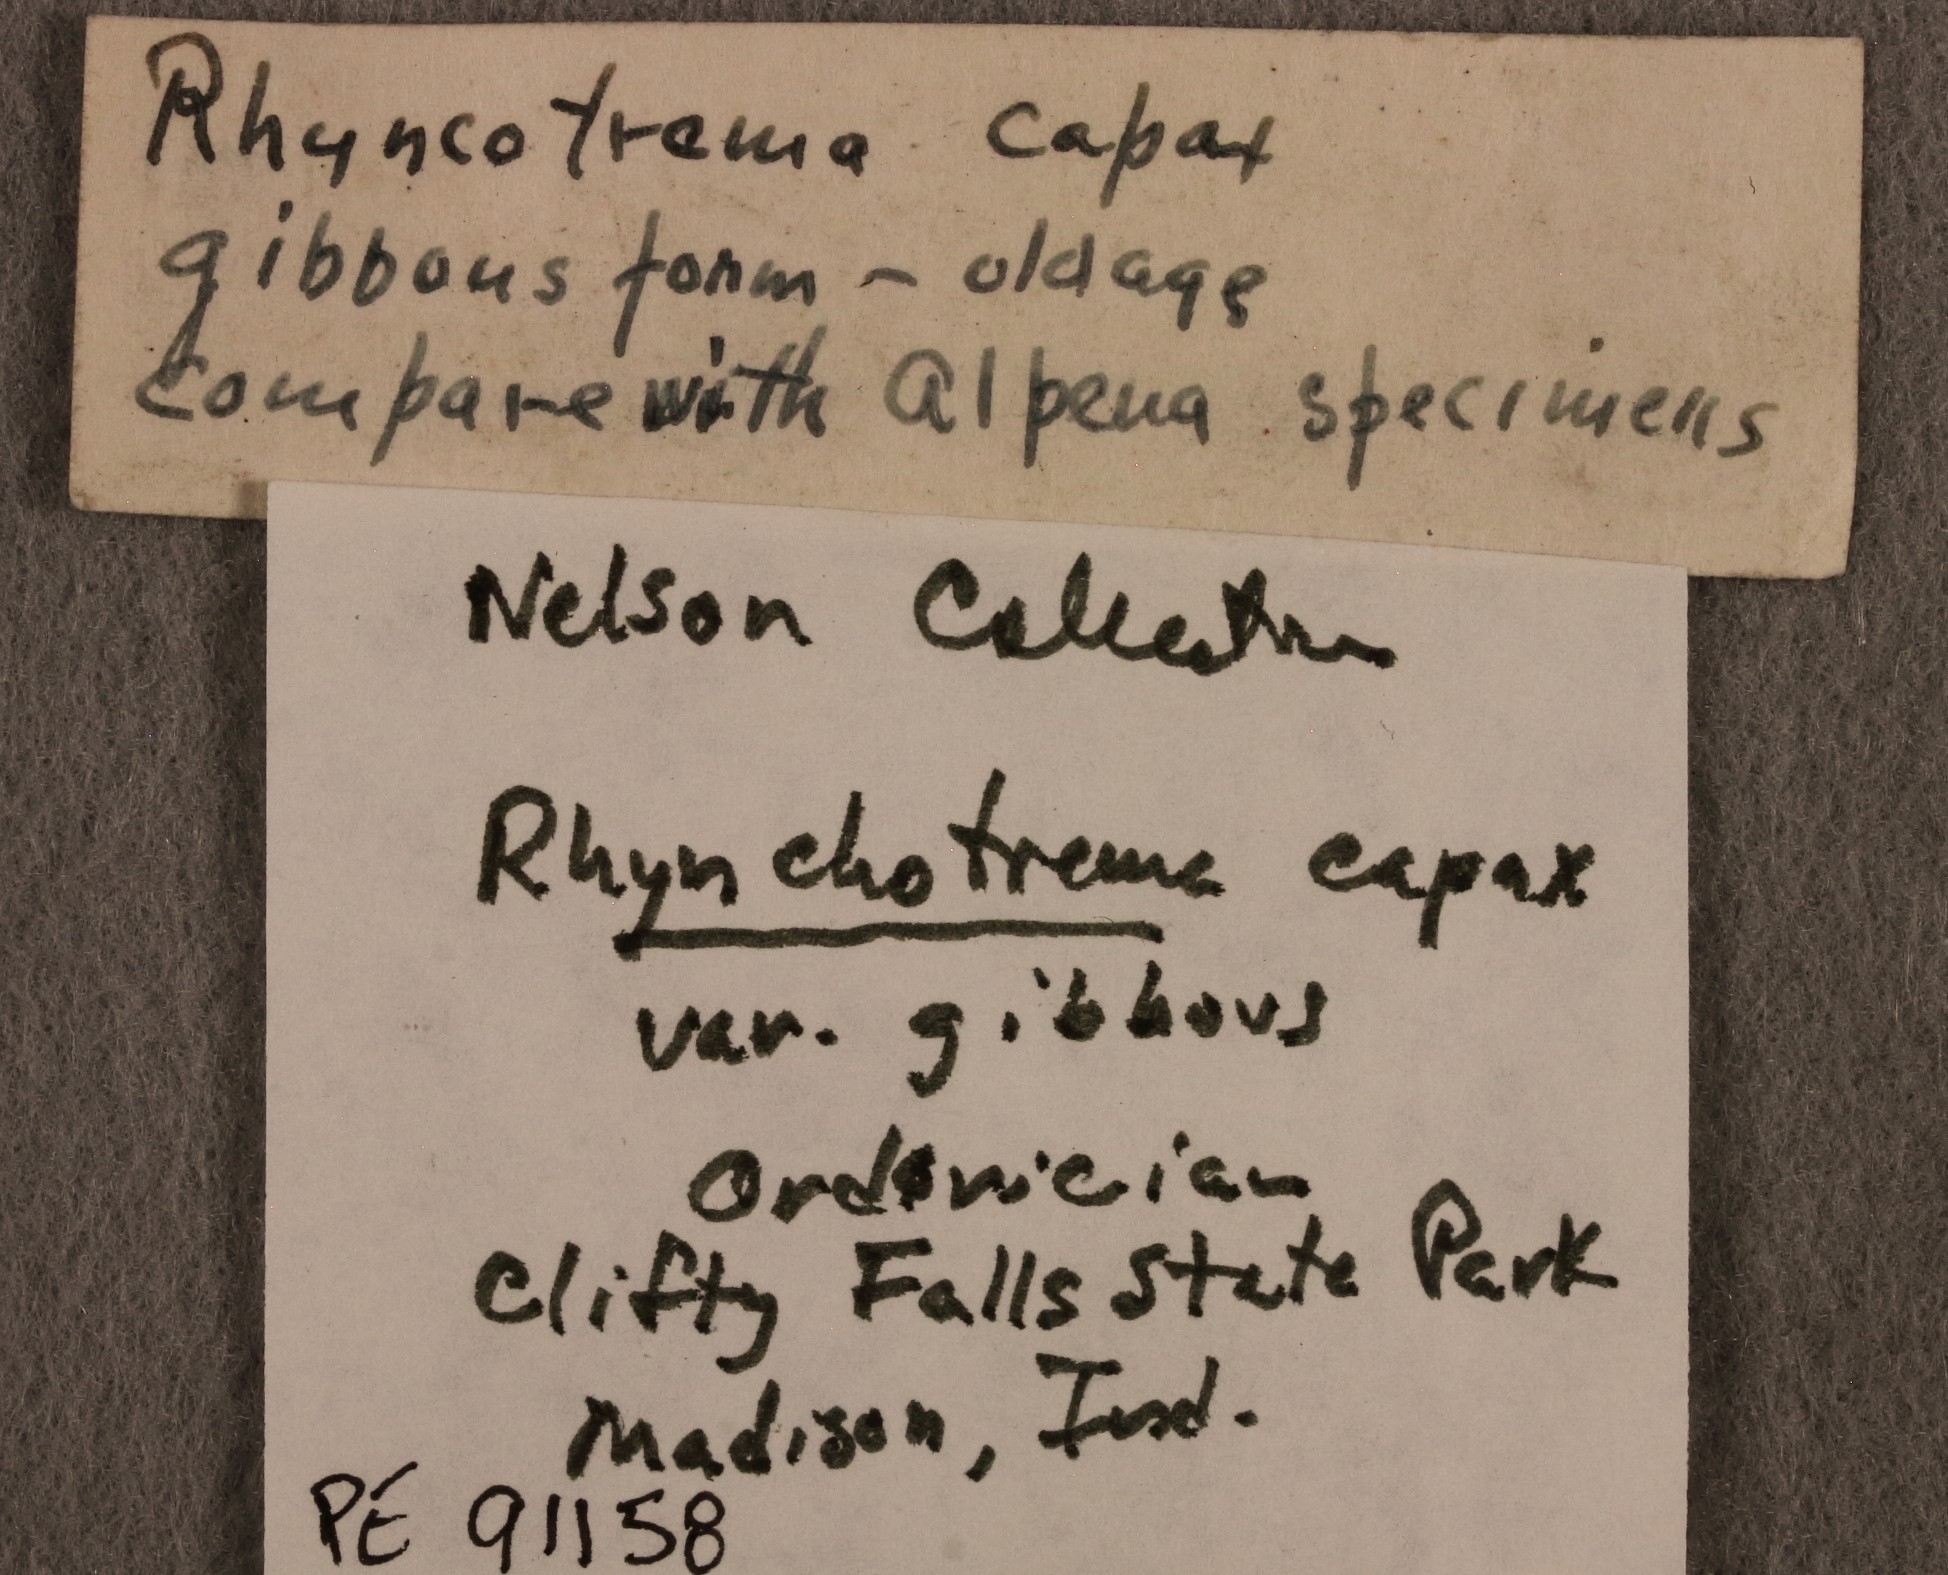 Rhyncotrema capax
gibbous form - oldage
compare with Alpena specimens
Nelson Collection
Rhynchotrema capax
var. gibbous
Ordovician
Clifty Falls State Park
Madison, Ind.
PE 91158